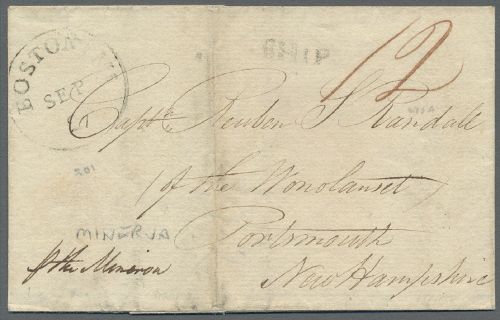 BOSTON
SEP
SHIP
12
Capt. Reuben S Randall
(of the Wonolanset)
201
Portsmouth
MINERVA
New Hampshire
p the Minerva